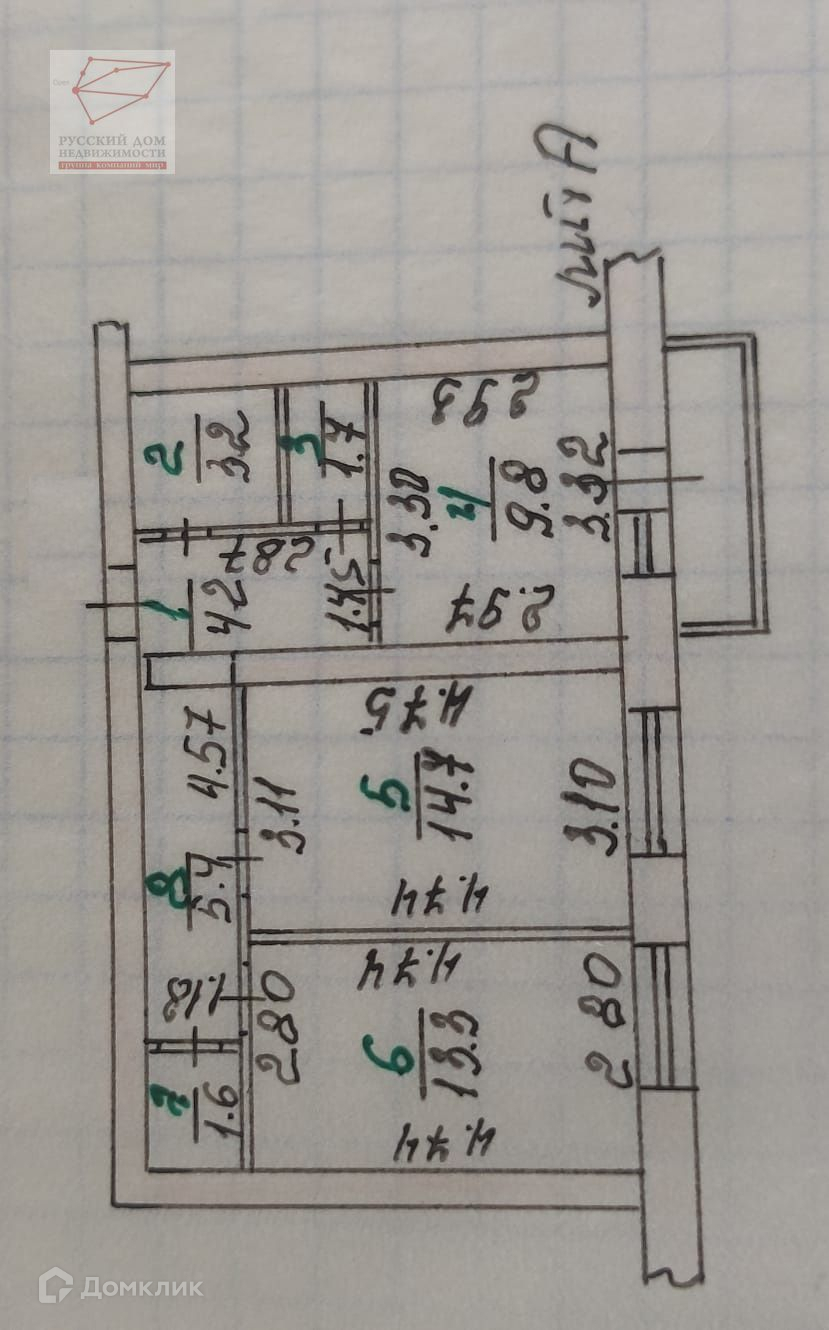 Орел
РУССКИЙ ДОМ
НЕДВИЖИМОСТИ
группа компаний мир
лит А
2
3.2
3
1.7
2.98
3.30
4
9.8
3.32
1
4.2
2.87
1.45
2.97
4.57
8
5.4
1.18
3.11
4.75
5
14.7
3.10
4.74
4.74
2.80
6
13.3
2.80
4.74
7
1.6
Домклик